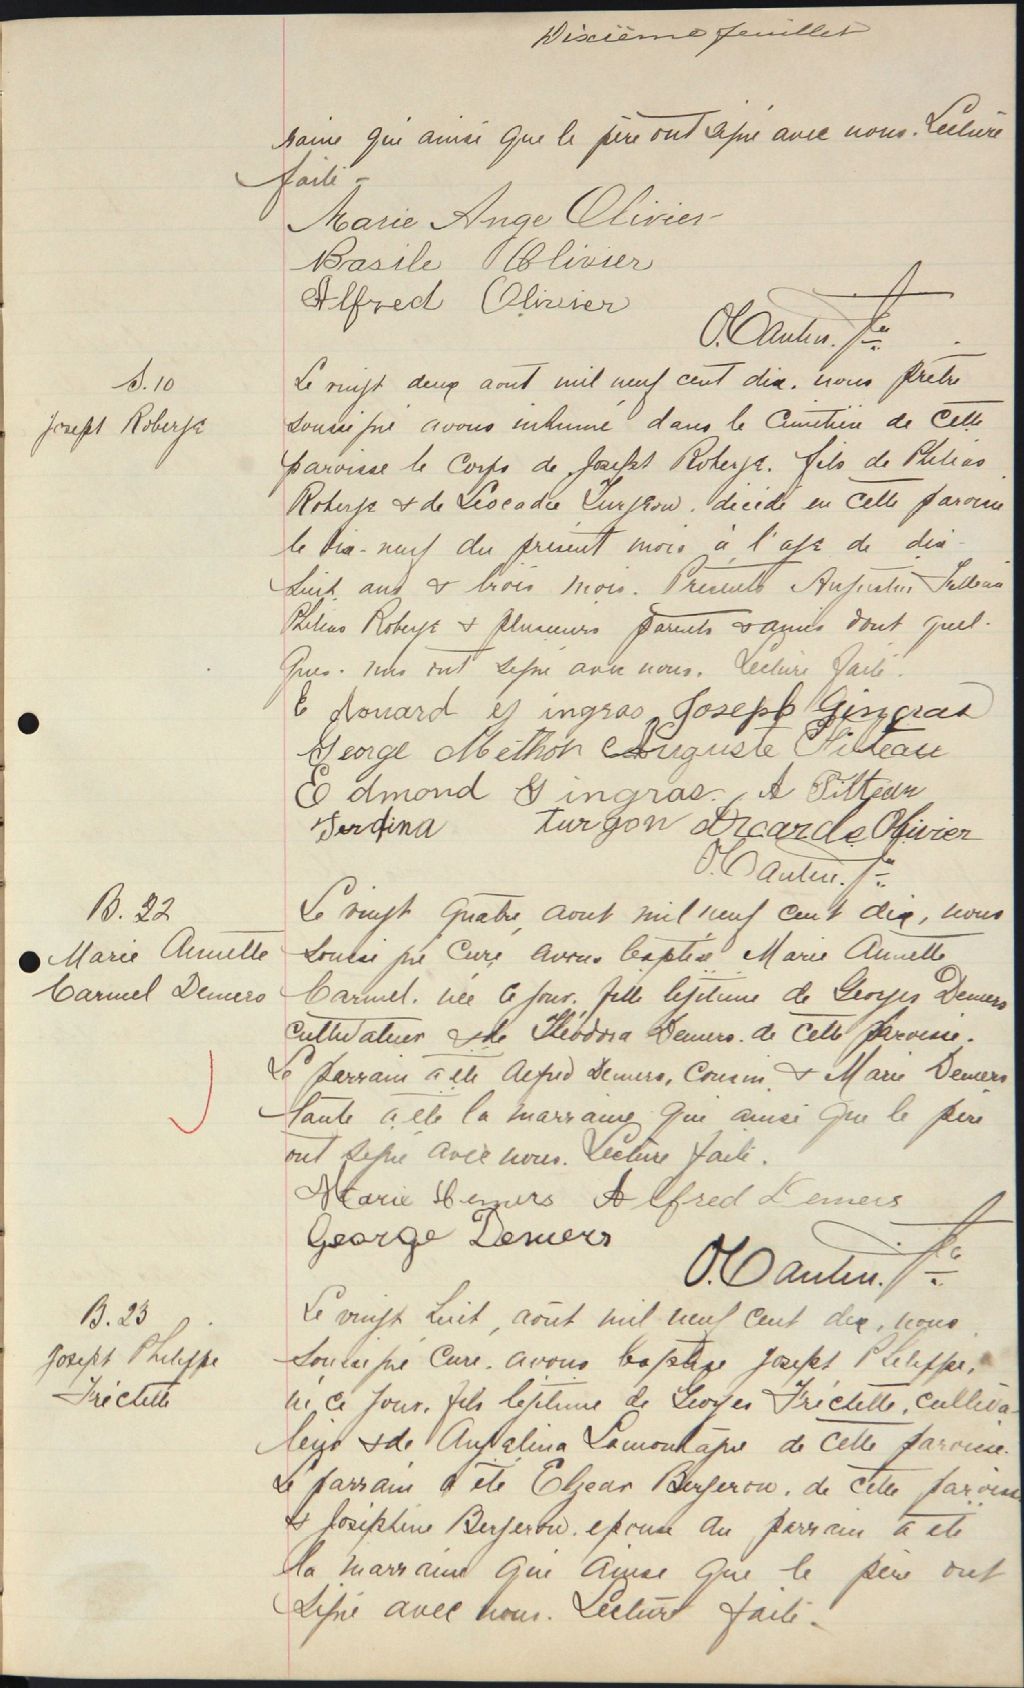 Dixième feuillet
raine qui ainsi que le père ont signé avec nous. Lecture
faite -
Marie Ange Olivier
Basile Olivier
Alfred Olivier
O. Cantin. Ptre
S. 10
Joseph Roberge
Le vingt deux aout mil neuf cent dix. nous prêtre
soussigné avons inhumé dans le Cimetière de Cette
paroisse le Corps de Joseph Roberge. fils de Philias
Roberge & de Léocadie Turgeon. décédé en Cette paroisse
le dix-neuf du présent mois à l'age de dix-
huit ans & trois mois. Présents Augustin
Philias Roberge & plusieurs parents & amis dont quel-
ques-uns ont signé avec nous. Lecture faite.
Edouard Gingras Joseph Gingras
George Méthot Auguste
Edmond Gingras. A
turgon Olivier
O. Cantin. Ptre
B. 22
Marie Annette
Carmel Demers
Le vingt quatre, aout mil neuf cent dix, nous
soussigné Curé avons baptisé Marie Annette
Carmel. née ce jour. fille légitime de Georges Demers
cultivateur & de Théodora Demers. de Cette paroisse.
Le parrain a été Alfred Demers, Cousin & Marie Demers
tante a été la marraine qui ainsi que le père
ont signé avec nous. Lecture faite.
Marie Demers Alfred Demers
George Demers
O. Cantin. Ptre
B. 23
Joseph Philippe
Fréchette
Le vingt huit, août mil neuf cent dix, nous
soussigné Curé. avons baptisé Joseph Philippe,
né ce jour. fils légitime de Georges Fréchette, cultiva-
teur & de Angelina Lamontagne de Cette paroisse.
Le parrain a été Elzear Bergeron. de Cette paroisse
& Joséphine Bergeron. epouse du parrain a été
la marraine qui ainsi que le père ont
signé avec nous. Lecture faite.